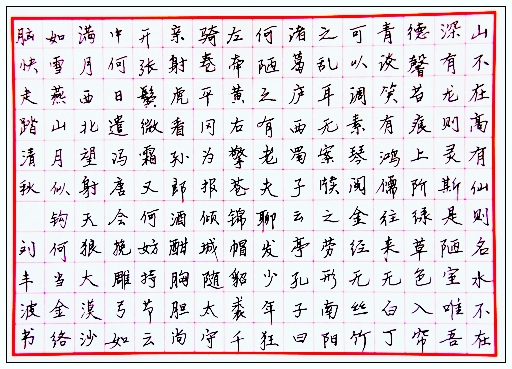 山不在高有仙则名水不在
深有龙则灵斯是陋室唯吾
德馨苔痕上阶绿草色入帘
青谈笑有鸿儒往来无白丁
可以调素琴阅金经无丝竹
之乱耳无案牍之劳形南阳
诸葛庐西蜀子云亭孔子曰
何陋之有老夫聊发少年狂
左牵黄右擎苍锦帽貂裘千
骑卷平冈为报倾城随太守
亲射虎看孙郎酒酣胸胆尚
开张鬓微霜又何妨持节云
中何日遣冯唐会挽雕弓如
满月西北望射天狼大漠沙
如雪燕山月似钩何当金络
脑快走踏清秋 刘丰波书